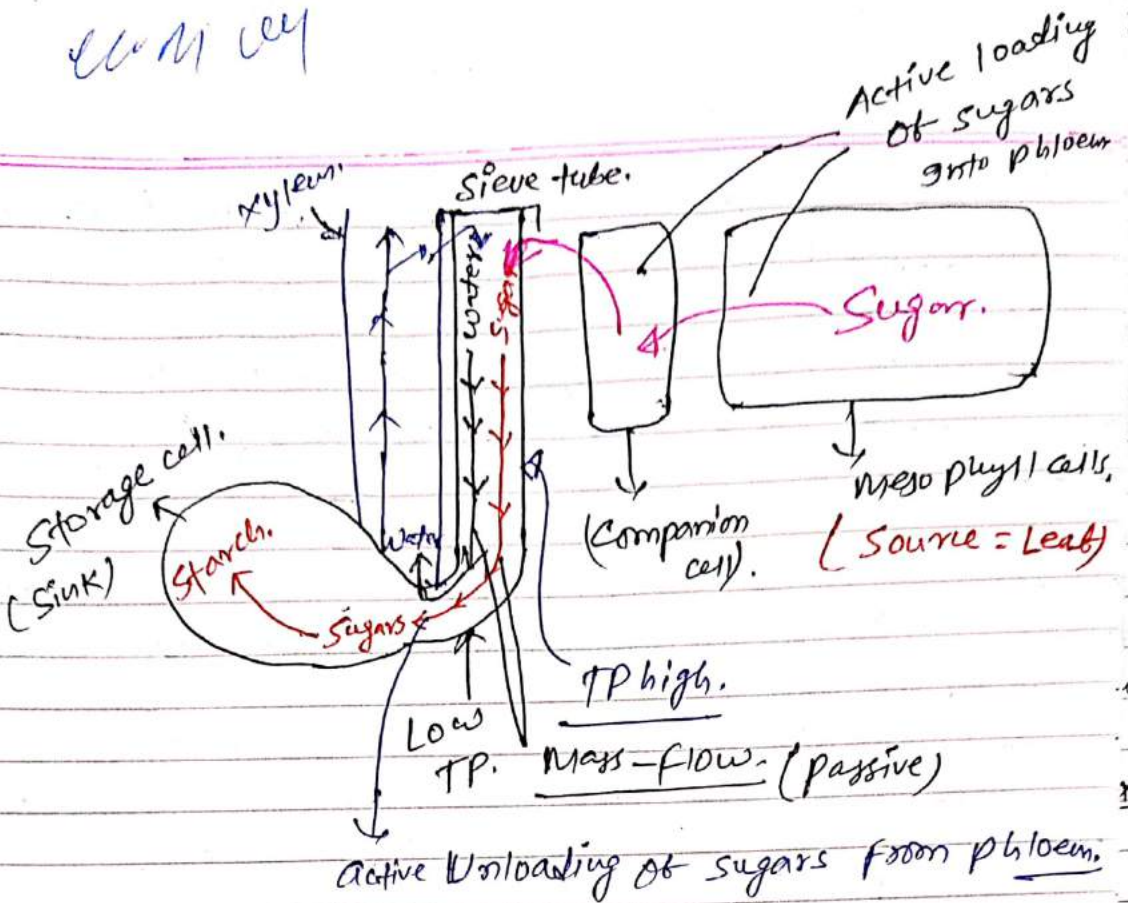 Active loading
of sugars
into phloem
xylem.
Sieve tube.
Water
Sugar
Sugar.
Storage cell.
(Sink)
Starch.
Sugars
Water
(Companion
cell).
Mesophyll cells.
(Source = Leaf)
TP high.
Low
TP.
Mass-flow. (passive)
active Unloading of sugars from phloem.